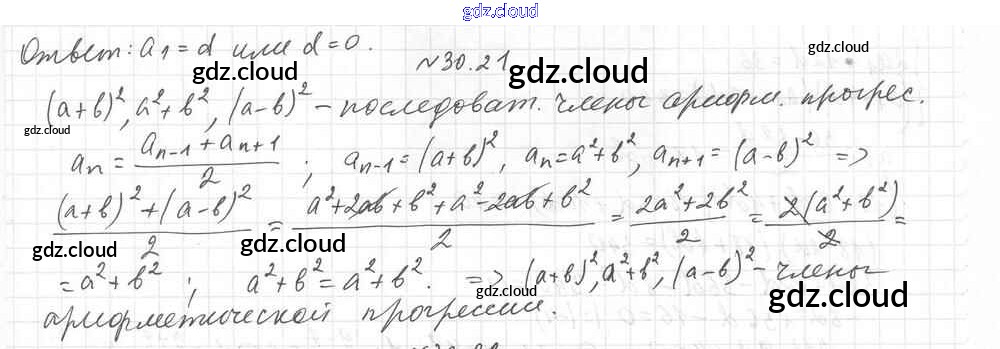 gdz.cloud
Ответ: a₁ = d или d = 0.
№30.21
gdz.cloud
gdz.cloud
(a+b)², a²+b², (a-b)² – последоват. члены арифм. прогрес.
gdz.cloud
gdz.cloud
aₙ = (aₙ₋₁ + aₙ₊₁)/2 ; aₙ₋₁ = (a+b)², aₙ = a²+b², aₙ₊₁ = (a-b)² =>
((a+b)² + (a-b)²)/2 = (a²+2ab+b²+a²-2ab+b²)/2 = (2a²+2b²)/2 = 2(a²+b²)/2 =
gdz.cloud
gdz.cloud
gdz.cloud
= a²+b² ; a²+b² = a²+b². => (a+b)², a²+b², (a-b)² – члены
gdz.cloud
gdz.cloud
арифметической прогрессии.